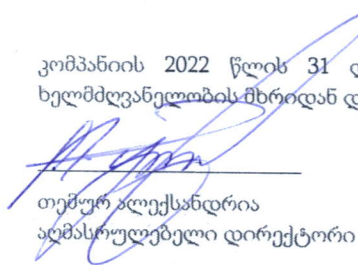 კომპანიის 2022 წლის 31 დ
ხელმძღვანელობის მხრიდან დ
თემურ ალექსანდრია
აღმასრულებელი დირექტორი